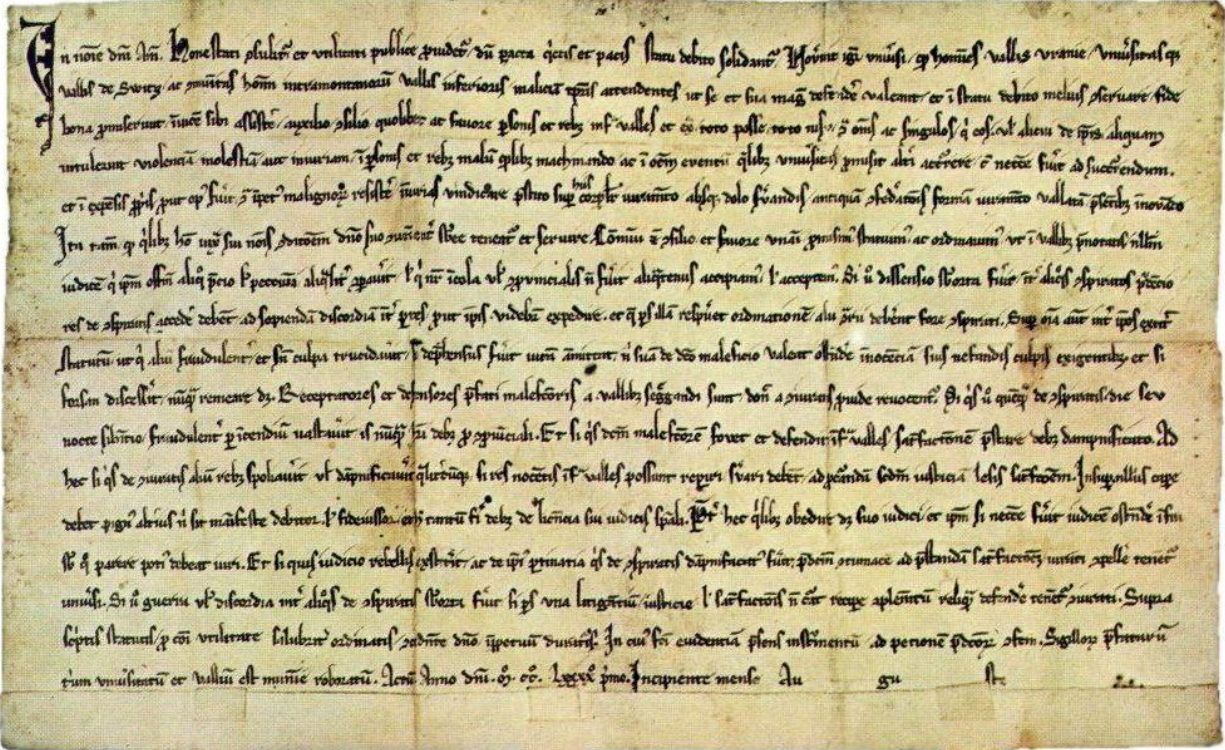 In noīe dn̄i Am̄. Honestati ꝯsulit᷑ et vtilitati publice ꝓuidet᷑ dū pacta q̇etis et pacis statu debito solidant᷑. Nou̓int igit᷑ vniu̓si qȝ hoīes vallis vranie vniu̓sitas qȝ
vallis de Switz ac ꝯmunitas hoīm intramontanorū vallis inferioris maliciā tꝑis attendentes ut se et sua magˢ defēde̓ valeant et ī statu debito melius ꝯseruare fide
bona ꝓmiserunt īuicē sibi assiste̓ auxilio ꝯsilio quolibȝ ac fauore ꝑsonis et rebȝ inf̓ valles et ex̓ toto posse toto nisu ꝯ̓ om̄s ac singulos q̇ eos vl̓ alicui de ip̄is aliquam
intulerint violenciā molestiā aut iniuriam ī ꝑsonis et rebȝ malū qd̓libȝ machinando ac ī om̄ē euentū q̓libȝ vniu̓sitas ꝓmisit alt̓i accu̓rere cū necēe fu̓it ad succu̓rendum.
et ī expēsis ꝓp̓is ꝓut opˀ fu̓it ꝯ̓ īpetˀ malignoꝝ resiste̓ īiurias vindicare p̓stito suꝑ hiis corꝑal̓r iuramento absqȝ dolo s̓uandis antiquā ꝯfede̓atōis formā iuramento vallatā p̄sētibȝ inouādo
Ita tam̄ qȝ q̓libȝ hō iux̓ sui noīs ꝯditōem dn̄o suo ꝯueniēt᷑ sb̓ēe teneat᷑ et seruire Cōmuni ꝯ̄ silio et fauore vnaī ꝓmisimˀ statuimˀ ac ordinauimˀ vt ī vallibȝ p̓notatis nllm̄
iudicē q̇ ip̄m offm̄ aliq̊ p̓cio l̓ peccunia aliq̓lit᷑ ꝯparau̓it l̓ q̇ nr̄ īcola vl̓ ꝯprouincialis n̄ fu̓it aliq̓tenus accipiamˀ l̓ acceptemˀ. Si u̓ dissensio sb̓orta fu̓it īt̓ aliq̊s ꝯspiratos prudēcio
res de ꝯspiratis accede̓ debēt ad sopiendā discordiā īt̓ ꝑtes ꝓut ip̄is videbit᷑ expedire et q̄ ꝑs illā respu̓et ordinationē alii ꝯ̓rii deberēt fore ꝯspirati. Suꝑ oīa aūt int̓ ip̄os extit̓
statutū ut q̇ aliū fraudulent̓ et sn̄ culpa trucidau̓it si dep̓hensus fu̓it uitā āmittat n̓ suā de dc̄o maleficio valeat oste̓de̓ īnocēciā suis nefandis culpis exigentibȝ et si
forsan discess̓it nūqᵃ remeare dȝ. Receptatores et defensores p̓fati malefctoris a vallibȝ segrēgandi sunt don̄ a ꝯiuratis ꝓuide reuocent᷑. Si q̇s u̓ quemqᵃ de ꝯspiratis die seu
nocte silētio fraudulent̓ ꝑ īcendiū uastau̓it is nunqᵃ hr̄i debȝ ꝓ ꝯprouīciali. Et si q̇s dc̄m malefctorē fouet et defendit īf̓ valles satˢfactionē p̓stare debȝ dampnificato. Ad
hec si q̇s de ꝯiuratis aliū rebȝ spoliau̓it vl̓ dāpnificau̓it q̓lit̓cūqȝ si res nocētis īf̓ valles possunt repiri s̓uari debēt ad ꝓcurandā scdm̄ iusticiā lesis satˢfactōem. Insuꝑ nullus capere
debet pignˀ altˀius n̓ sit māifeste debitor l̓ fideiussor et h̓ tantū fi̓i debȝ de licēncia sui iudicis sp̄ali. Pret̓ hec q̓libȝ obedire dȝ suo iudici et ip̄m si necēe fu̓it iudicē oste̓de̓ īfra
sb̓ q̊ parere potiˀ debeat iuri. Et si quis iudicio rebellis exstit̓it ac de ip̄iˀ ꝑtinatia q̇s de ꝯspiratis dāpnificatˀ fu̓it p̓dc̄m ꝯtumacē ad p̓standā satˢfactionē iurati ꝯpelle̓ tenent᷑
vniu̓si. Si u̓ guerra vl̓ discordia int̓ aliq̊s de ꝯspiratis sb̓orta fu̓it si ꝑs vna litigantiū iusticie l̓ satˢfactionis n̄ curat recipe̓ ꝯplemētū reliquā defende̓ tenent᷑ ꝯiurati. Supra
scriptis statutis ꝓ cōi vtilitate salubrit̓ ordinatis ꝯcedēte dn̄o īpetuū duraturis. In cuiˀ fc̄i euidentiā p̄sens inst̓mentū ad peticionē p̓dictoꝝ ꝯfectm̄ Sigilloꝝ p̓fatarū
trium vniu̓sitatū et valliū est munīe roboratū. Actū Anno dn̄i. M. CC. LXXXX p̓mo. Incipiente mense Au gu sto.